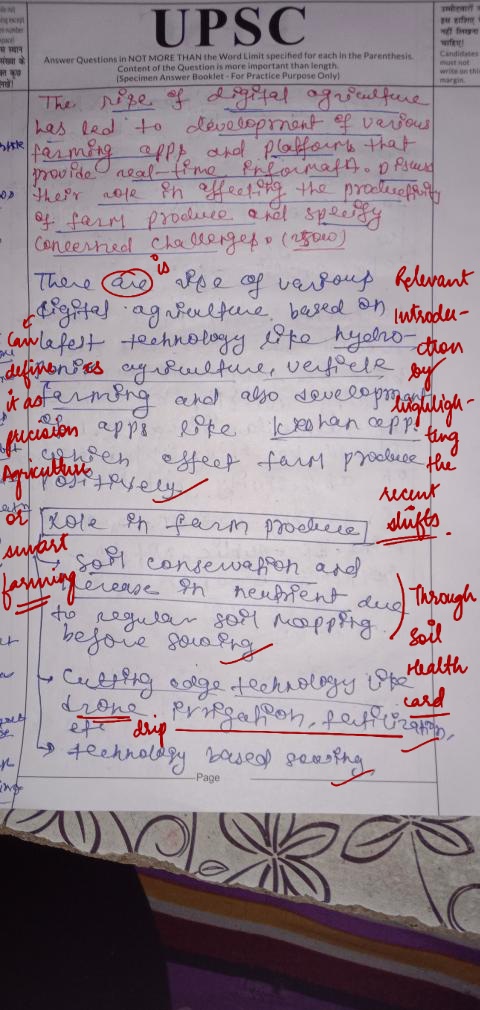 UPSC
Answer Questions in NOT MORE THAN the Word Limit specified for each in the Parenthesis.
Content of the Question is more important than length.
(Specimen Answer Booklet - For Practice Purpose Only)
उम्मीदवारों को
इस हाशिए
नहीं लिखना
चाहिए।
Candidates
must not
write on this
margin.
The rise of digital agriculture
has led to development of various
farming apps and platforms that
provide real-time informatn. Discuss
their role in affecting the productivity
of farm produce and specify
concerned challenges. (250w)
There are rise of various
is
digital agriculture based on
latest technology like hydro-
ponics agriculture, verticle
farming and also development
of apps like Kishan app
which affect farm produce
positively
Relevant
introdu-
ction
by
highligh-
ting
the
recent
shifts.
Can
define
it as
precision
Agriculture
or
smart
farming
Role in farm produce
→ Soil conservation and
increase in nutrient due
to regular soil mapping
before sowing
Through
Soil
Health
card
→ Cutting edge technology like
drone irrigation, fertilization,
etc
drip
→ technology based sowing
Page